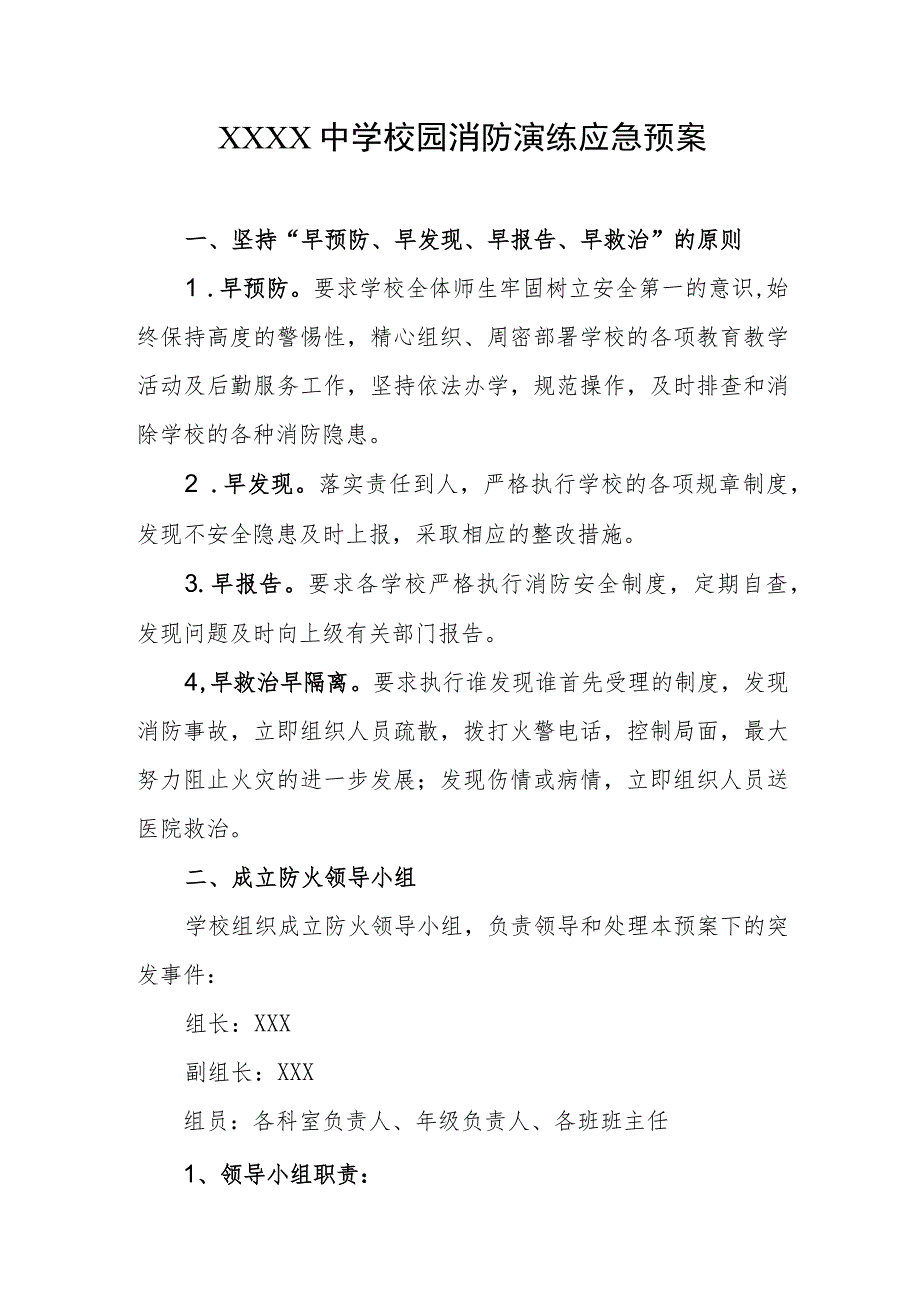 XXXX 中学校园消防演练应急预案
一、坚持“早预防、早发现、早报告、早救治”的原则
1 .早预防。要求学校全体师生牢固树立安全第一的意识,始
终保持高度的警惕性，精心组织、周密部署学校的各项教育教学
活动及后勤服务工作，坚持依法办学，规范操作，及时排查和消
除学校的各种消防隐患。
2 .早发现。落实责任到人，严格执行学校的各项规章制度，
发现不安全隐患及时上报，采取相应的整改措施。
3.早报告。要求各学校严格执行消防安全制度，定期自查，
发现问题及时向上级有关部门报告。
4,早救治早隔离。要求执行谁发现谁首先受理的制度，发现
消防事故，立即组织人员疏散，拨打火警电话，控制局面，最大
努力阻止火灾的进一步发展；发现伤情或病情，立即组织人员送
医院救治。
二、成立防火领导小组
学校组织成立防火领导小组，负责领导和处理本预案下的突
发事件：
组长：XXX
副组长：XXX
组员：各科室负责人、年级负责人、各班班主任
1、领导小组职责：